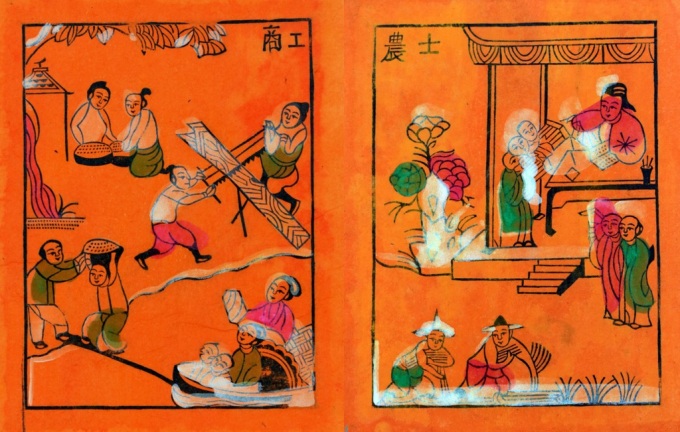 士農
工商